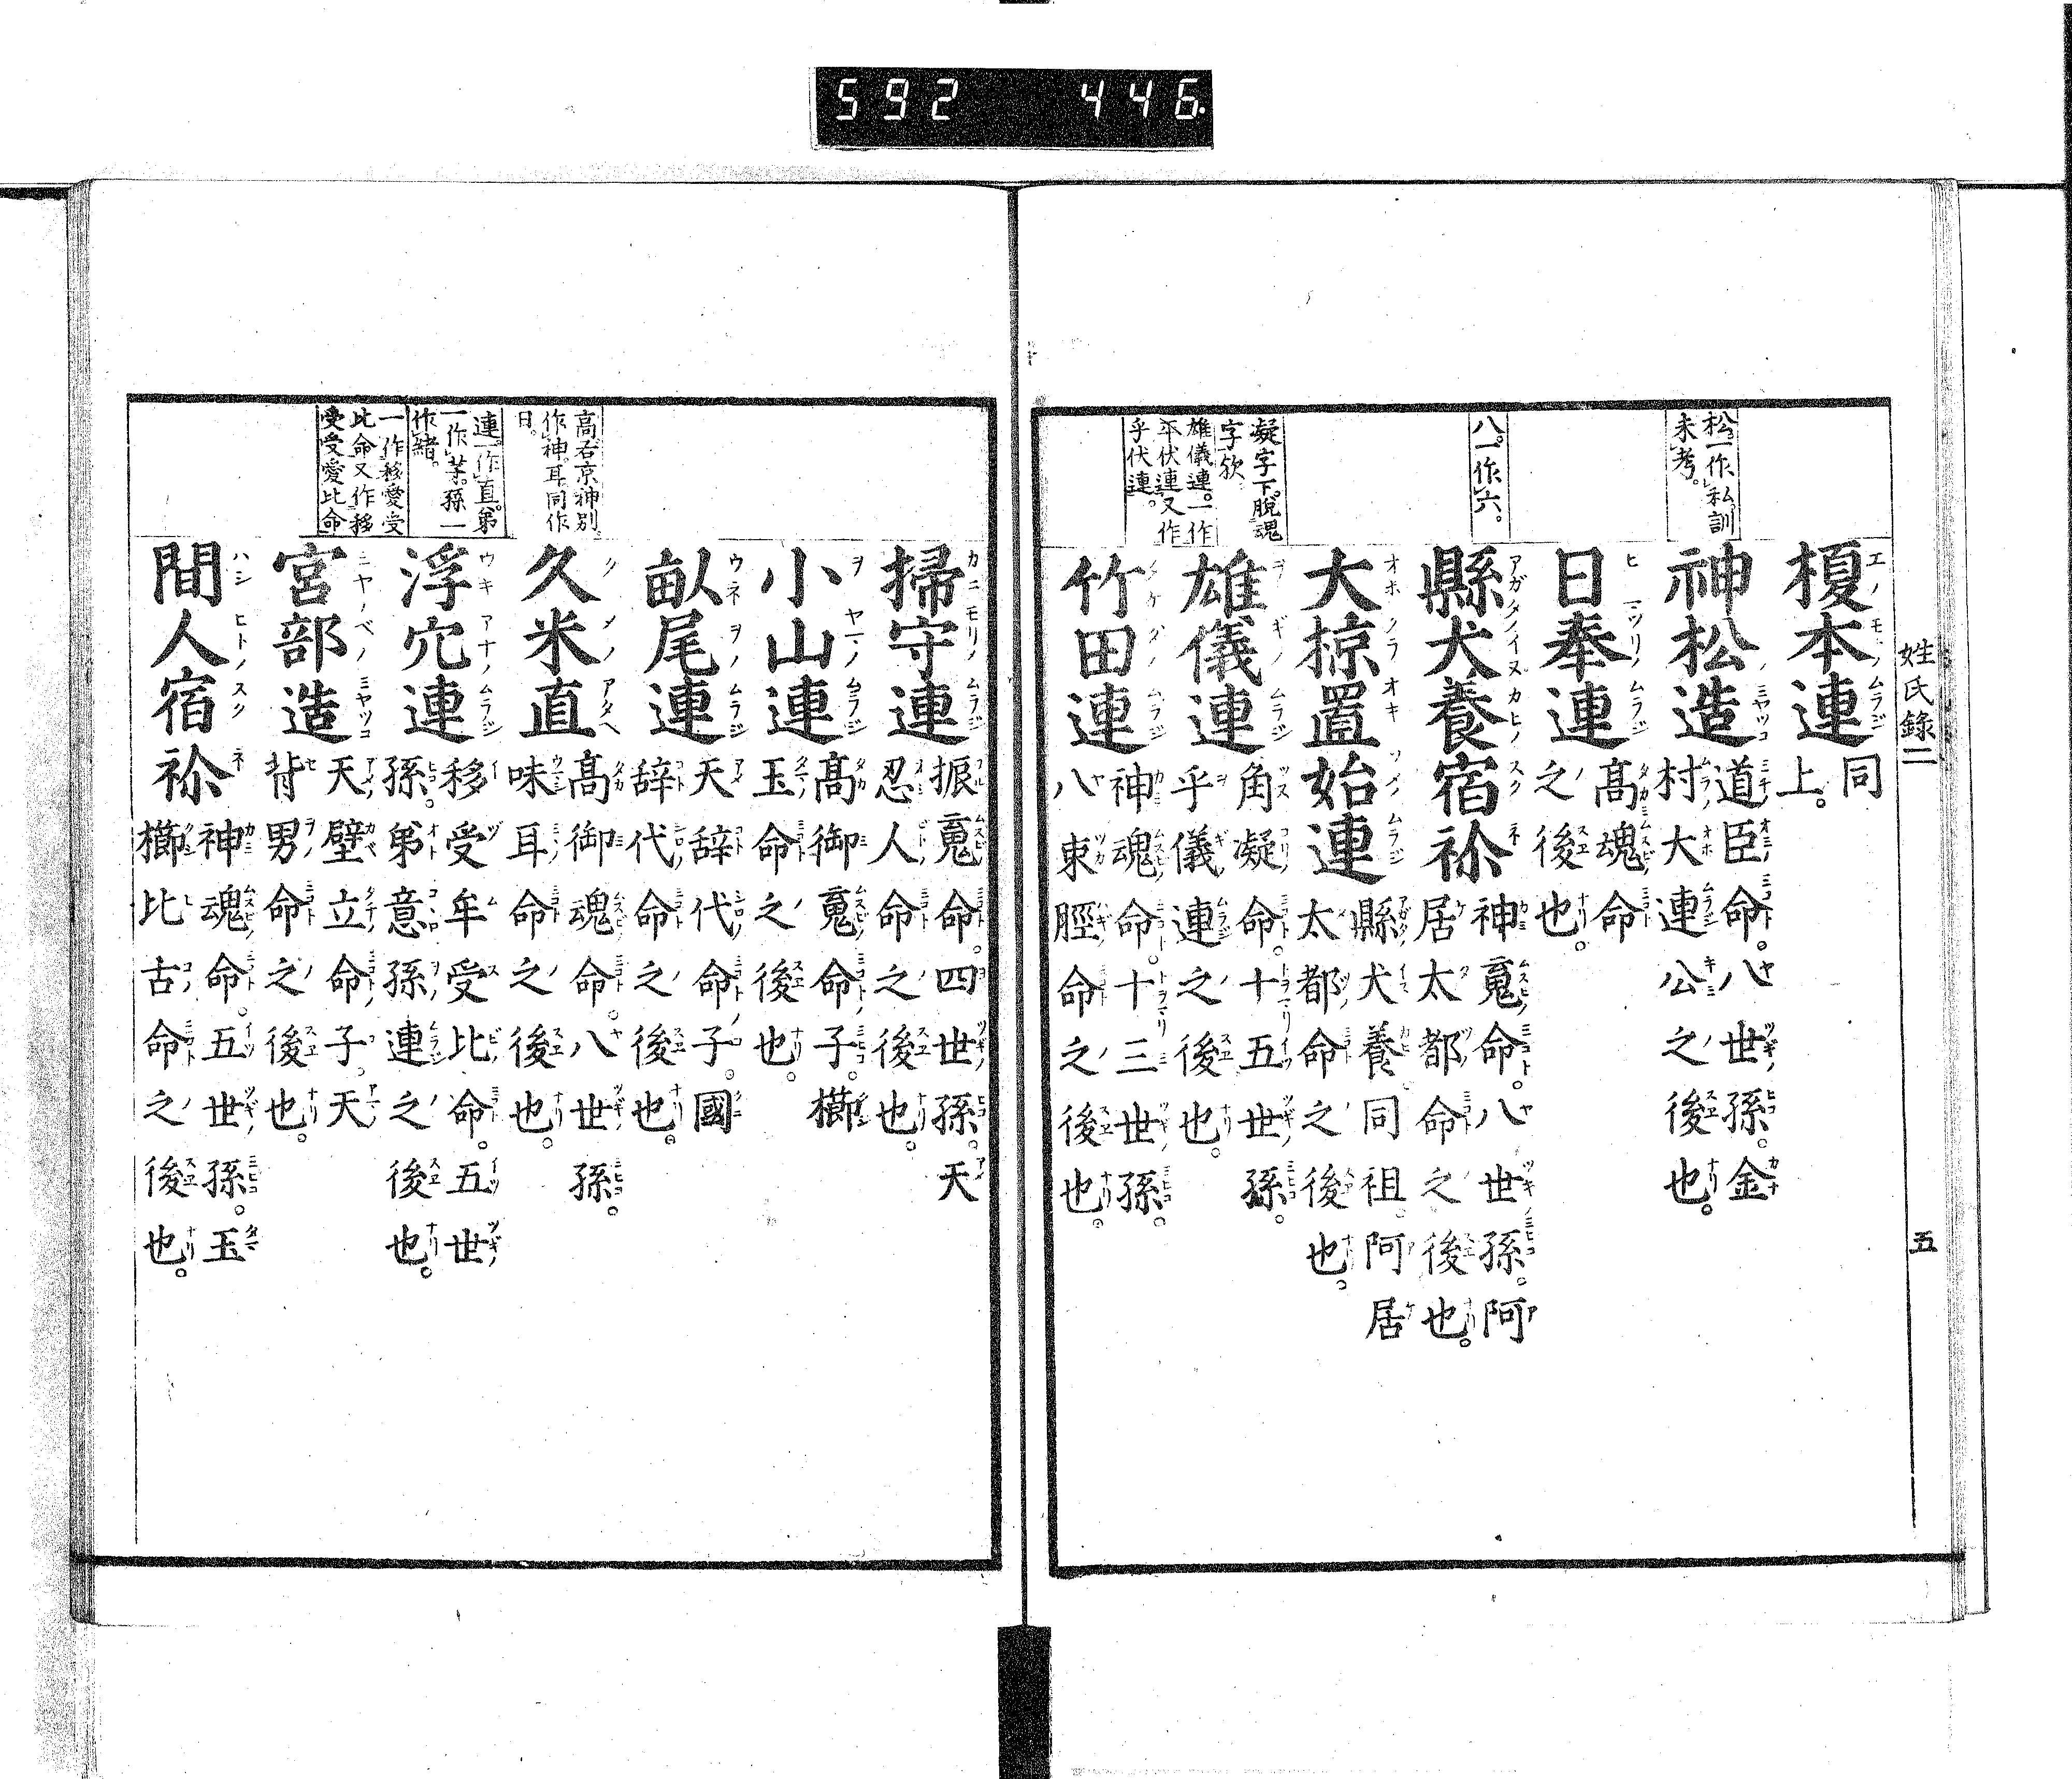 592 446.
姓氏錄二
五
松一作私訓
未考。
八。一作六。
凝字下。脫魂
字欤
雄儀連。一作
平伏連又作
乎伏連。
榎本連 同
上。
神松造 道臣命。八世孫。金
村大連公之後也。
日奉連 髙魂命
之後也。
縣犬養宿祢 神䰟命。八世孫。阿
居太都命之後也。
大掠置始連 縣犬養同祖。阿居
太都命之後也。
雄儀連 角凝命。十五世孫。
乎儀連之後也。
竹田連 神魂命。十三世孫。
八束脛命之後也。
高右京神別
作神。耳同作
日。
連一作直。弟
一作茅。孫一
作緒。
一作移愛受
比命又作移
受受愛比命
掃守連 振䰟命。四世孫。天
忍人命之後也。
小山連 髙御䰟命子。櫛
玉命之後也。
畝尾連 天辞代命子。國
辞代命之後也。
久米直 髙御魂命。八世孫。
味耳命之後也。
浮穴連 移受牟受比命。五世
孫。弟意孫連之後也。
宮部造 天壁立命子。天
背男命之後也。
間人宿祢 神魂命。五世孫。玉
櫛比古命之後也。